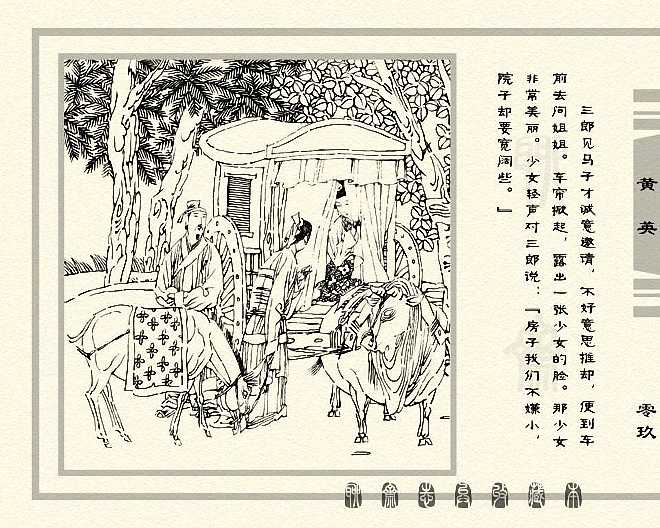 三郎见马子才诚意邀请，不好意思推却，便到车
前去问姐姐。车帘掀起，露出一张少女的脸。那少女
非常美丽。少女轻声对三郎说：『房子我们不嫌小，
院子却要宽阔些。』
黄英
零玖
聊斋志异收藏本